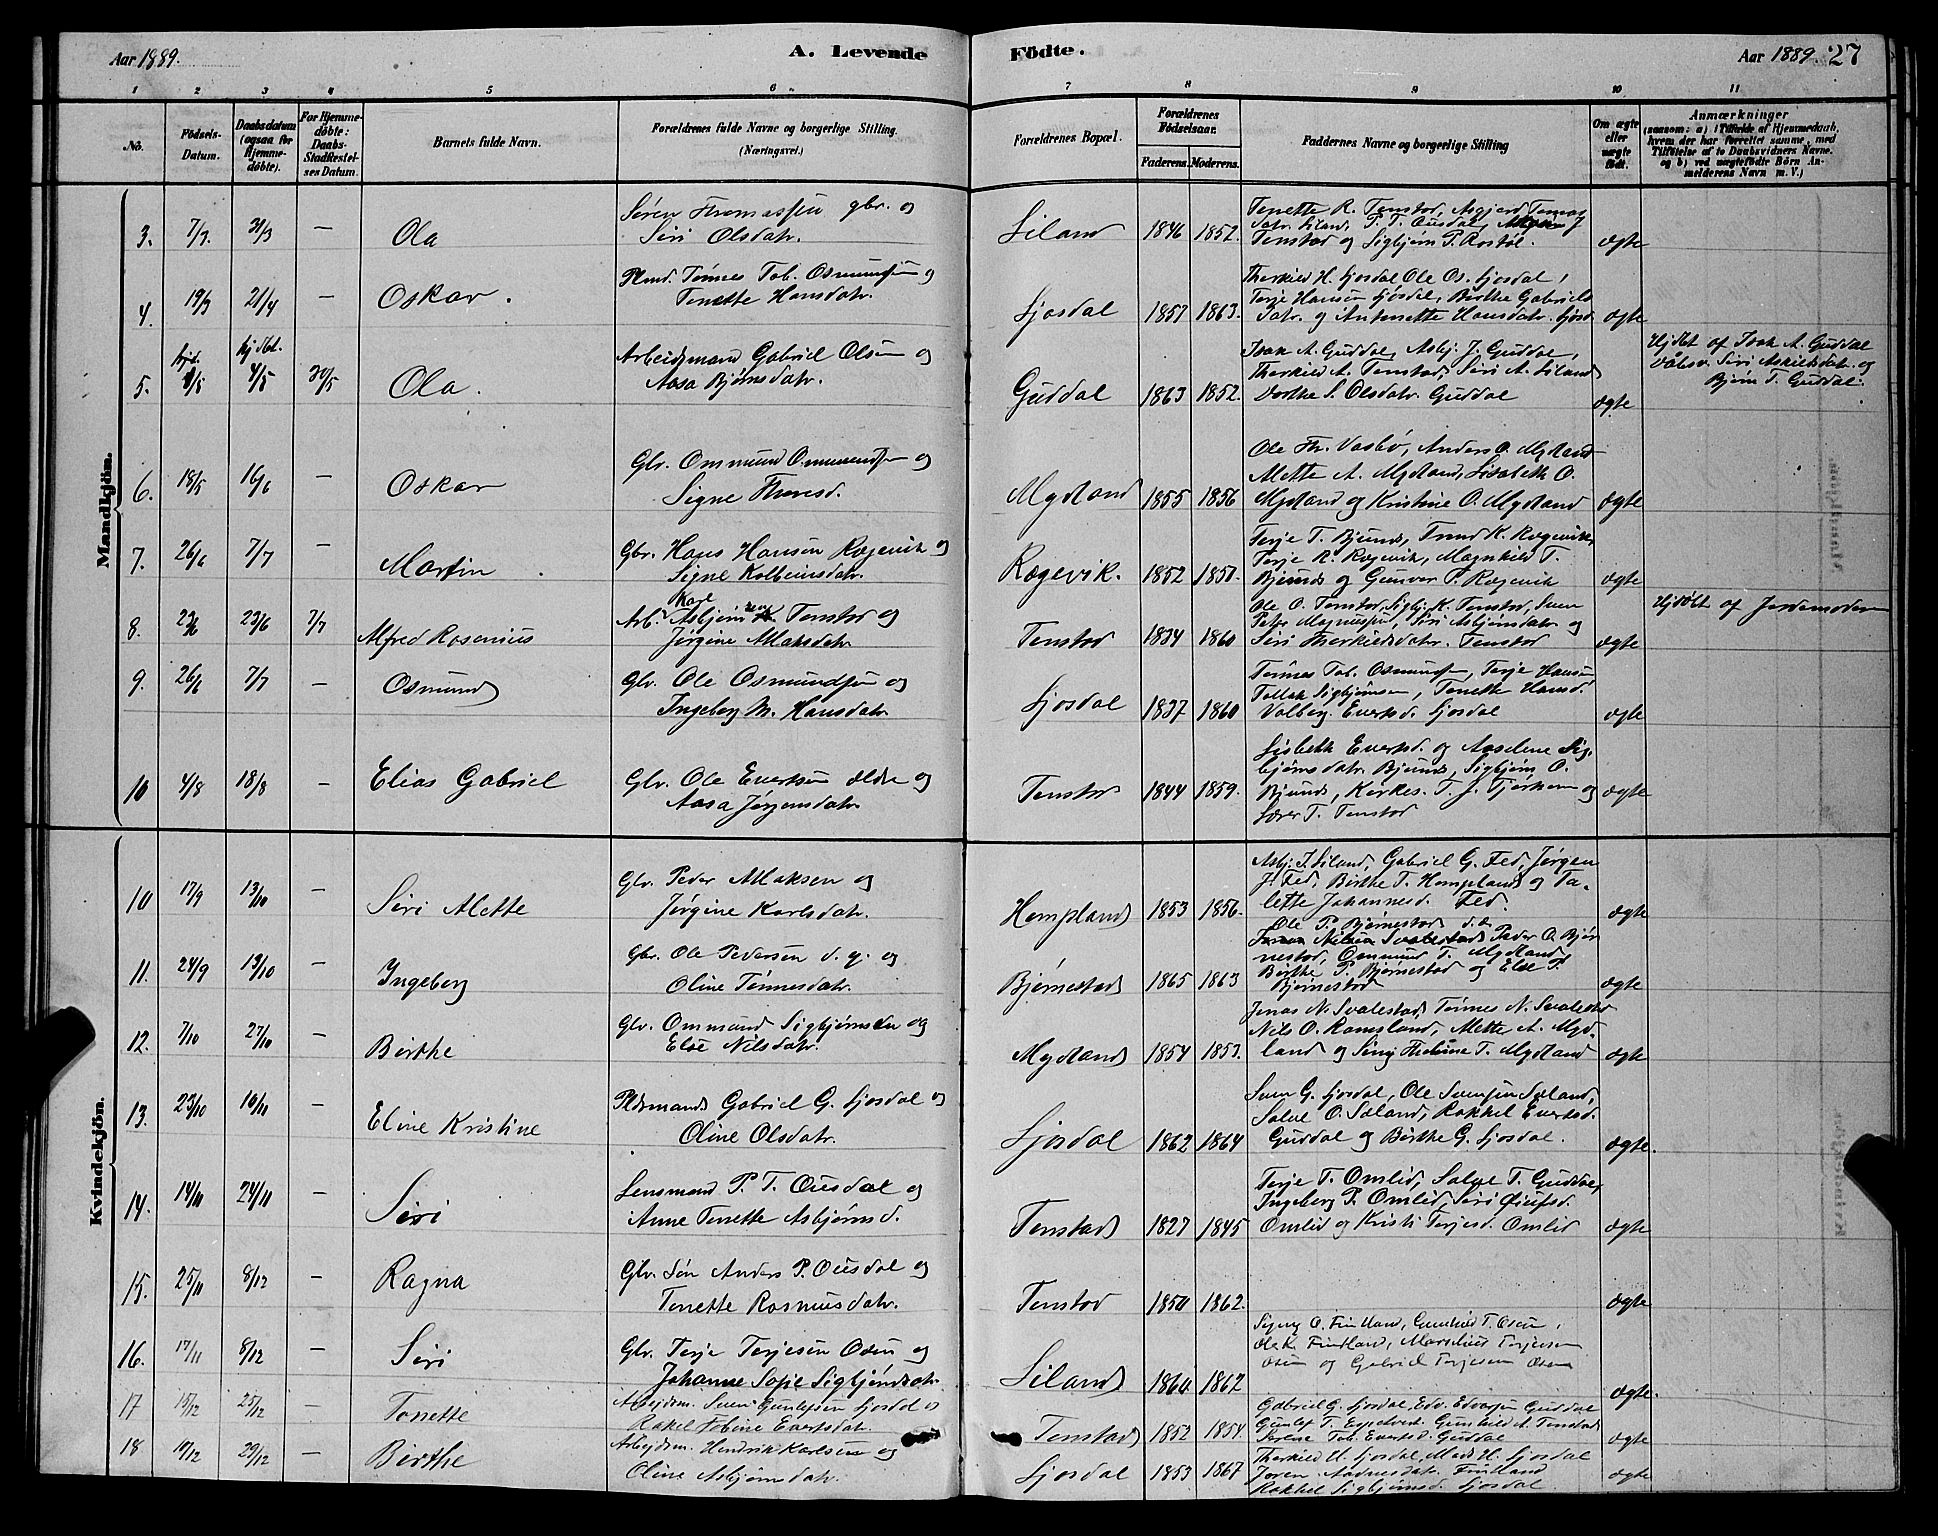 Aar 1889. A. Levende Födte. Aar 1889. 27
1 2 3 4 5 6 7 8 9 10 11
No. Födsels-Datum. Daabsdatum (ogsaa for Hjemmedøbte). For Hjemmedøbte: Daabs-Stadfæstelses Datum. Barnets fulde Navn. Forældrenes fulde Navne og borgerlige Stilling. (Næringsvei.) Forældrenes Bopæl. Forældrenes Födselsaar. Faderens. Moderens. Faddernes Navne og borgerlige Stilling Om ægte eller uægte født. Anmærkninger (saasom: a) i Tilfælde af Hjemmedaab, hvem der har forrettet samme, med Tilföielse af to Daabsvidners Navne. og b) ved uægtefödte Börn Anmelderens Navn m. V.)
Mandkjön.
3. 7/3. 31/3 — Ola
Søren Thomassen gbr. og
Siri Olsdatr.
Liland 1846 1852.
Tonette R. Tonstad, Asgjerd Tomas
datr. Liland, T. T. Ousdal,
Tonstad og Sigbjørn P. Rostøl. ægte
4. 19/3 21/4 — Oskar.
Plmd. Tønnes Tob. Osmundsen og
Tonette Hansdatr.
Ljosdal 1857 1863.
Therkild H. Ljosdal, Ole Os. Ljosdal,
Terje Hansen Ljosdal, Birthe Gabriels
datr. og Antonette Hansdatr. Ljosd. ægte
5. 4/5 hjdbt. 4/5 30/5 Ola.
Arbeidsmand Gabriel Olsen og
Aasa Bjørnsdatr.
Guddal 1863 1852.
Isak A. Guddal, Asbj. J. Guddal,
Therkild A. Tonstad, Siri A. Liland
Dorthe S. Olsdatr. Guddal ægte
Hjdbt af Isak A. Guddal
Dåbsv. Siri Askildsdatr. og
Bjørn T. Guddal.
6. 18/5 16/6 — Oskar
Gbr. Ommund Ommundsen og
Signe Thoresd.
Mydland 1855 1856
Ole Th. Vasbø, Anders O. Mydland
Mette A. Mydland, Lisabeth O.
Mydland og Kristine O. Mydland ægte
7. 26/6 7/7 — Martin.
Gbr. Hans Hansen Rægevik og
Signe Kolbeinsdatr.
Rægevik. 1852 1857.
Terje T. Bjunes, Trond K. Rægevik,
Terje R. Rægevik, Magnhild T.
Bjunes og Gunvor P. Rægevik ægte
8. 23/6 23/6 7/7 Alfred Rosenius
Arb. Asbjørn Karlsen Tonstad og
Jørgine Maksdatr.
Tonstad 1834 1860
Ole O. Tonstad, Sigbj. K. Tonstad, Sven
Petr Magnussen, Siri Asbjørnsdatr og
Siri Therkildsdatr. Tonstad ægte
Hjdbt af Jordemoderen
9. 26/6 7/7 — Osmund
Gbr. Ole Osmundsen og
Ingeborg M. Hansdatr.
Ljosdal 1837 1860
Tønnes Tob. Osmunds., Terje Hansen
Tollak Sigbjørnsen, Tonette Hansd.
Valborg Evertsd. Ljosdal ægte
10 4/8 18/8 — Elias Gabriel
Gbr. Ole Evertsen ældre og
Aasa Jørgensdatr.
Tonstad 1844 1859.
Lisbeth Evertsd. og Aaselene Sig-
bjørnsdatr. Bjunes, Sigbjørn O.
Bjunes, Kirkes. T. J. Tjørhom og
Lærer T. Tonstad ægte
Kvindekjön.
10 17/9 13/10 — Siri Alette
Gbr. Peder Maksen og
Jørgine Karlsdatr.
Hompland 1853 1856.
Asbj. T. Liland, Gabriel G. Fed, Jørgen
J. Fed, Birthe T. Hompland og Ta-
lette Johannesd. Fed. ægte
11. 24/9 13/10 — Ingeborg
Gbr. Ole Pedersen d. y. og
Oline Tønnesdatr.
Bjørnestad 1865 1863
Ole P. Bjørnestad d. æ.
Peder O. Bjør
nestad, Ommund T. Mydland
Birthe P. Bjørnestad og Else P.
Bjørnestad ægte
12. 7/10 27/10 — Birthe
Gbr. Ommund Sigbjørnsen og
Else Nilsdatr.
Mydland 1854 1853.
Jonas N. Svalestad, Tønnes N. Svalestad
Nils O. Ramsland, Mette A. Myd-
land og Siny Theline T. Mydland ægte
13. 23/10 10/11 — Eline Kristine
Pldsmand Gabriel G. Ljosdal og
Oline Olsdatr.
Ljosdal 1862 1864
Sven G. Ljosdal, Ole Svensen Sæland,
Salve O. Sæland, Rakkel Evertsd.
Guddal og Birthe G. Ljosdal. ægte.
14. 14/11 24/11 — Siri
Lensmand P. T. Ousdal og
Anne Tonette Asbjørnsd.
Tonstad 1827 1845
Terje T. Omlid, Salve T. Guddal,
Ingeborg P. Omlid, Siri
Omlid og Kristi Terjesd. Omlid ægte
15. 25/11 8/12 — Ragna
Gbr. Søn Anders P. Ousdal og
Tonette Rasmusdatr.
Tonstad 1850 1862. ægte
16. 17/11 8/12 — Siri
Gbr. Terje Terjesen Osen og
Johanne Sofie Sigbjørnsdatr.
Liland 1860 1862
Signy O. Fintland, Gunhild T. Osen,
Ole K. Fintland, Marselius Terjesen
Osen og Gabriel Terjesen Osen ægte.
17 15/12 25/12 Tonette
Arbejdsm. Sven Gunlefsen Ljosdal og
Rakel Tobine Evertsdatr.
Tonstad 1852 1854
Gabriel G. Ljosdal, Edv. Edvasen Guddal
Gunlef T. Egelvest. Gunhild A. Tonstad
Serene Tob. Evertsd. Guddal ægte
18 14/12 29/12 Birthe
Arbejdsm. Hendrik Karlsen og
Oline Asbjørnsdatr.
Ljosdal 1853 1867
Therkild H. Ljosdal, Mads H. Ljosdal
Joren Aadnesdatr. Fintland
Rakkel Sigbjørnsd. Ljosdal. ægte